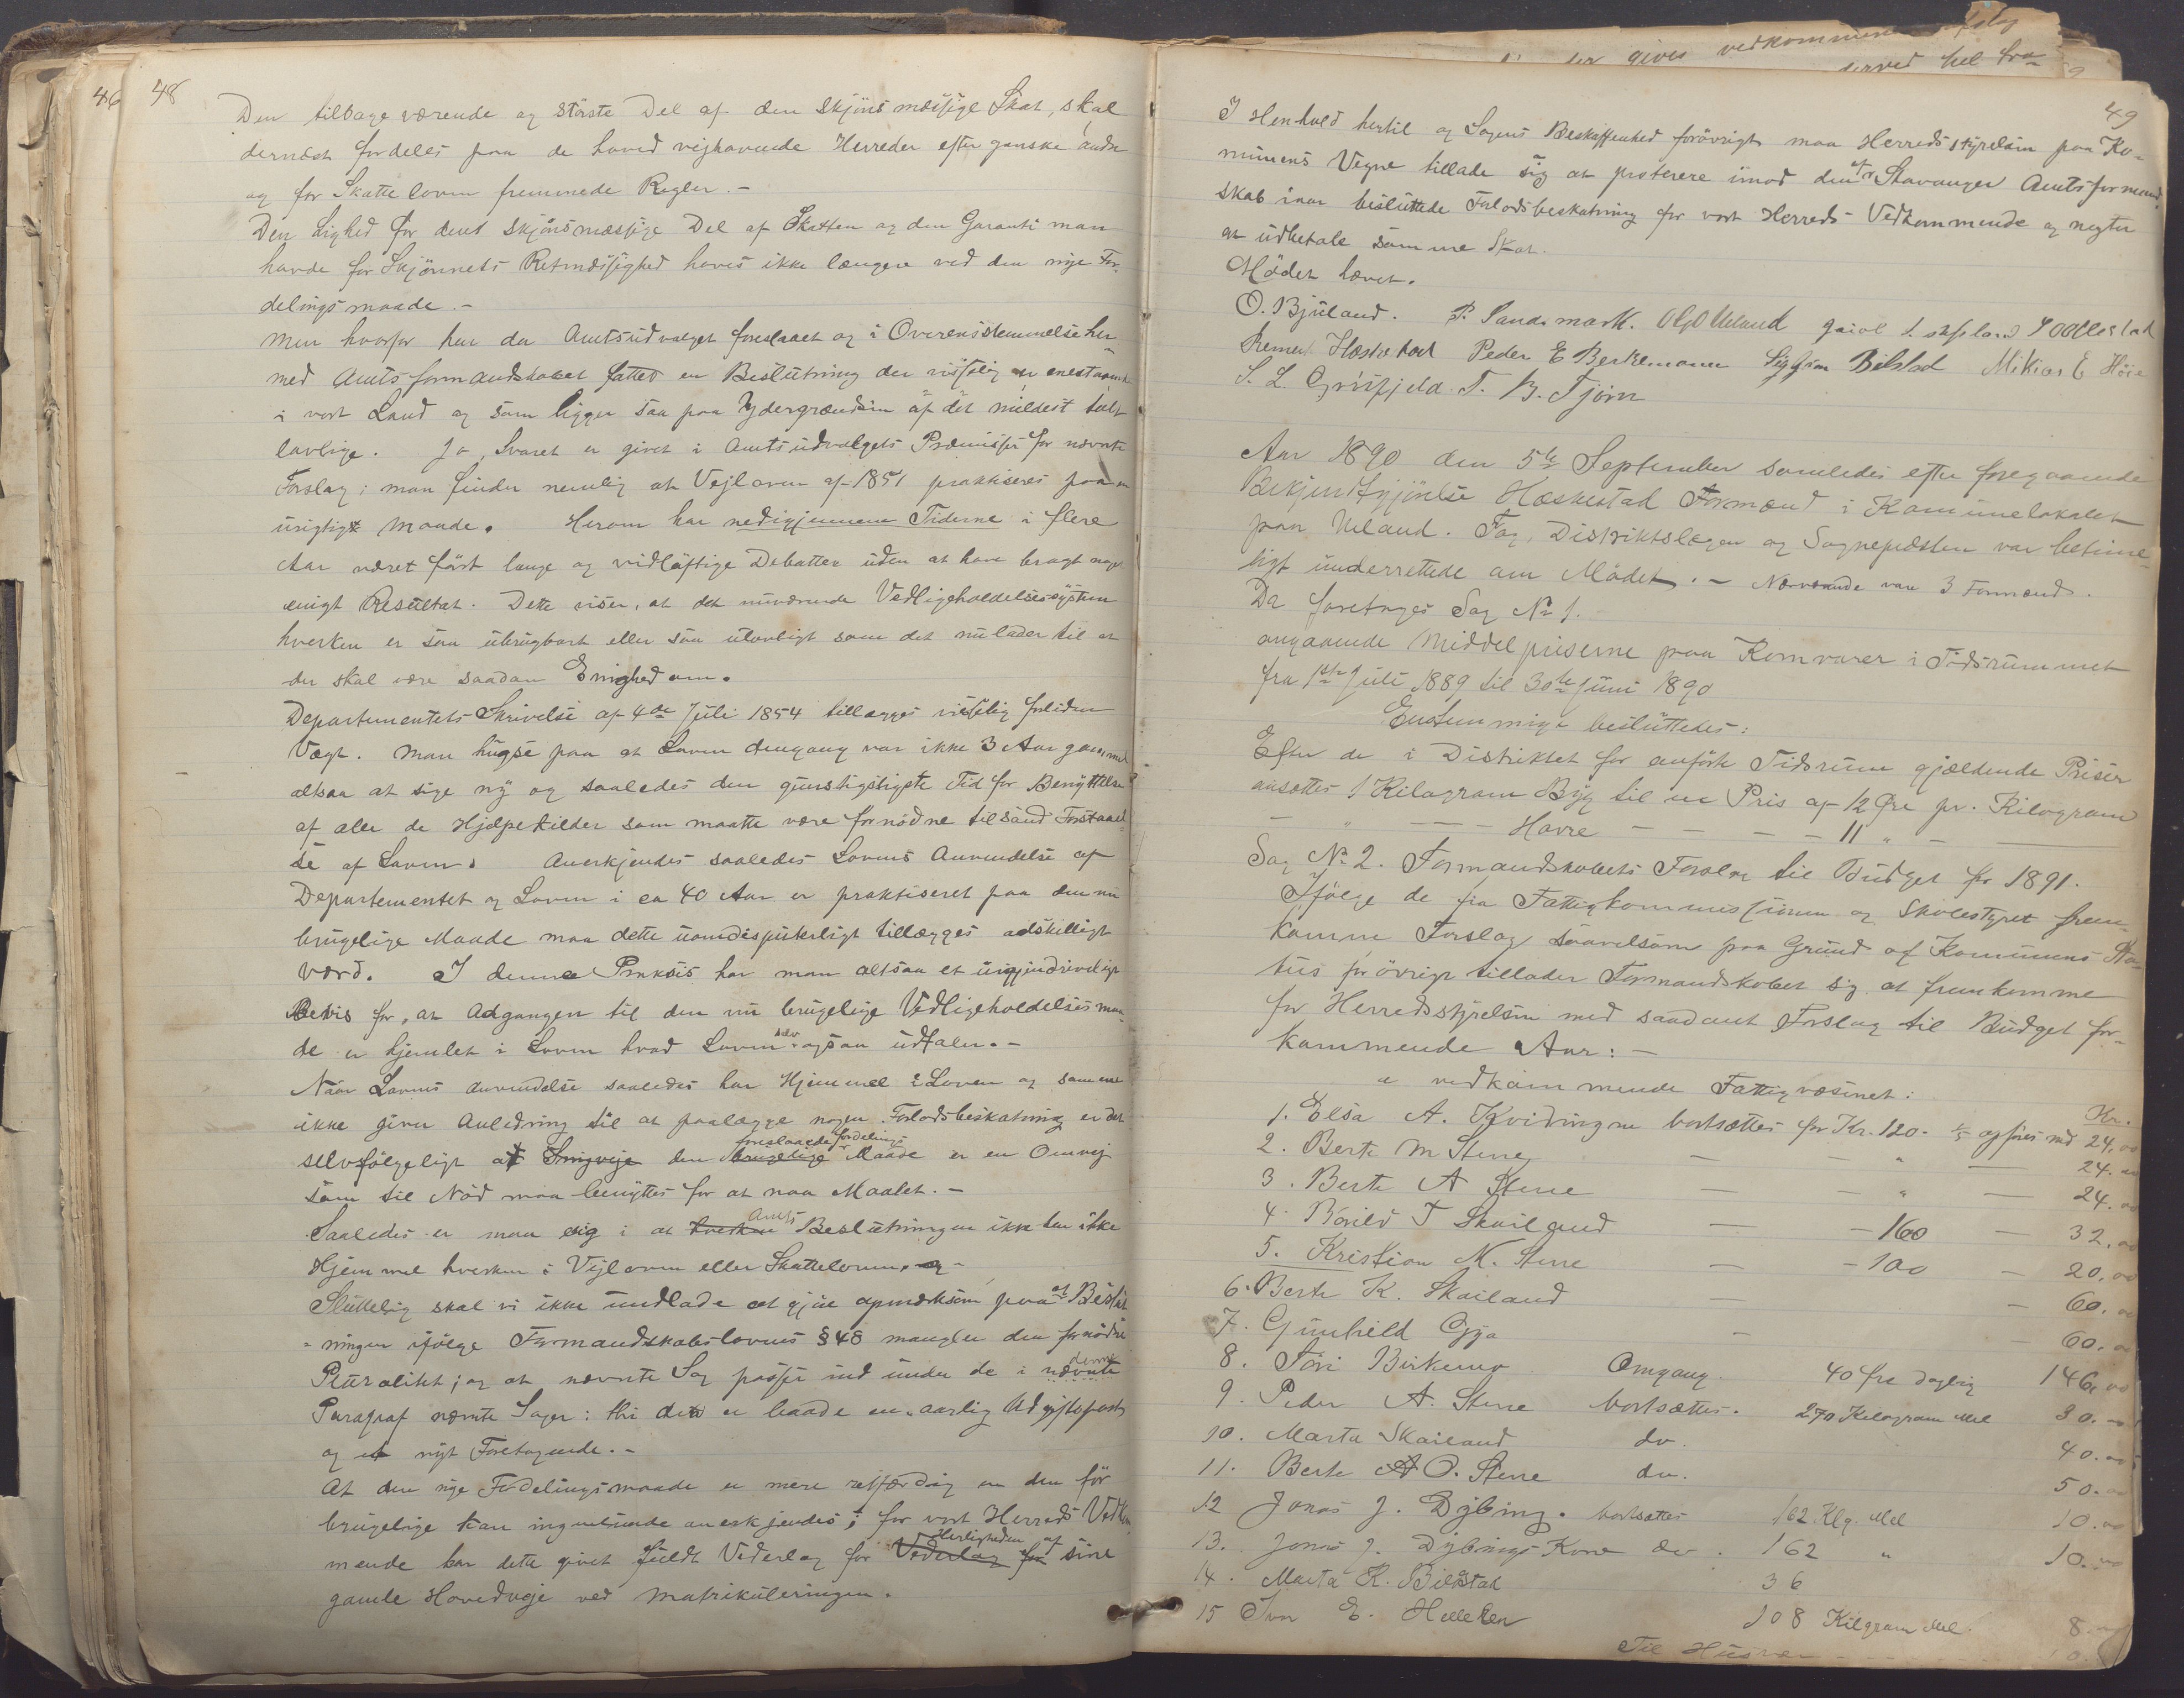 46 48
Den tilbageværende og störste Del af den skjönsmæssige Skat, skal
dernæst fordeles paa de hoved vejhavende Herreder efter ganske andre
og for Skatteloven fremmede Regler. -
Den Lighed for dens skjönsmæssige Del af Skatten og den Garanti man
havde for Skjönnets Retmæssighed haves ikke længere ved den nye For-
delingsmaade. -
Men hvorfor har da Amtsudvalget foreslaaet og i Overensstemmelse her
med Amtsformandskabet fattet en Beslutning der visselig er enestaaende
i vort Land og som ligger saa paa Ydergrændsen af det mildest talt
lovlige. Jo, Svaret er givet i Amtsudvalgets Præmisser for nævnte
Forslag; man finder nemlig at Vejloven af 1851 praktiseres paa en
urigtigt Maade. Herom har nedigjennem Tiderne i flere
Aar været fört lange og vidlöftige Debatter uden at have bragt noget
enigt Resultat. Dette viser, at det nuværende Vedligeholdelsessystem
hverken er saa ubrugbart eller saa ulovligt som det nu lader til at
der skal være saadan Enighed om.
Departementets Skrivelse af 4de Juli 1854 tillægges visselig forliden
Vægt. Man huske paa at Loven dengang var ikke 3 Aar gammel
altsaa at sige ny og saaledes den gunstigstigste Tid for Benyttelse
af alle de Hjælpekilder som maatte være fornödne til sand Forstaael-
se af Loven. Anerkjendes saaledes Lovens Anvendelse af
Departementet og Loven i ca 40 Aar er praktiseret paa den nu
brugelige Maade maa dette uomdisputerligt tillægges adskilligt
Værd. I denne Praksis har man altsaa et uigjendriveligt
Bevis for, at Adgangen til den nu brugelige Vedligeholdelsesmaa-
de er hjemlet i Loven hvad Loven selv ogsaa udtaler. -
Naar Lovens Anvendelse saaledes har Hjemmel i Loven og samme
ikke giver Anledning til at paalægge nogen Forlodsbeskatning er det
selvfölgeligt at Smugveje den brugelige foreslaaede fordelings Maade er en Omvej
som til Nöd maa benyttes for at naa Maalet. -
Saaledes er man enig i at hverken Amts Beslutningen ikke har ikke
Hjemmel hverken i Vejloven eller Skatteloven. og -
Sluttelig skal vi ikke undlade at gjöre opmærksom paa at Beslut
-ningen ifölge Formandskabslovens § 48 mangler den fornödne
Pluralitet; og at nævnte Sag passer ind under de i nævnte denne
Paragraf nævnte Sager: thi det er baade en aarlig Udgiftspost
og et nyt Foretagende. -
At den nye Fordelingsmaade er mere retfærdig en den för
brugelige kan ingenlunde anerkjendes; for vort Herreds Vedkom
mende har dette givet fuldt Vederlag for Vederlag for Herligheden af sine
gamle Hovedveje ved Matrikuleringen.
49
I Henhold hertil og Sagens Beskaffenhed forövrigt maa Herredsstyrelsen paa Ko-
munens Vegne tillade sig at protestere imod den af Stavanger Amtsformand-
skab iaar besluttede Forlodsbeskatning for vort Herreds Vedkommende og negter
at udbetale samme Skat.
Mödet hævet.
O. Bjuland. P. Sandsmark. Ol. O Ueland
Hæskestad Peder E Berkemoen Bilstad Mikias E Höie
S. L. Grösfjeld T. B. Tjörn
Aar 1890 den 5te September samledes efter foregaaende
Bekjendtgjörelse Hæskestad Formænd i Kommunelokalet
paa Ueland. Fog, Distriktslægen og Sognepræsten var betime-
ligt underrettede om Mödet. - Nærværende var 3 Formænd.
Da foretoges Sag No 1.
angaaende Middelpriserne paa Kornvarer i Tidsrummet
fra 1ste Juli 1889 til 30te Juni 1890
Enstemmigt besluttedes:
Efter de i Distriktet for anförte Tidsrum gjældende Priser
ansættes 1 Kilogram Byg til en Pris af 12 Öre pr. Kilogram
- " - - - Havre - - - - - 11 " - -
Sag No 2. Formandskabets Forslag til Budget for 1891.
Ifölge de fra Fattigkommissionen og Skolestyret frem-
komne Forslag saavelsom paa Grund af Kommunens Sta-
tus forövrigt tillader Formandskabet sig at fremkomme
for Herredsstyrelsen med saadant Forslag til Budget for-
kommende Aar: -
a vedkommende Fattigvæsenet:
Kr.
1. Elsa A. Kvidingmo bortsættes for Kr. 120. 1/5 opföres med 24,00
2. Berte M Stene - - " - 24.00
3. Berte A Stene - - " - 24.00
4. Bovild T Skailand - - 160 - 32,00
5. Kristian N. Stene - - 100 - 20,00
6. Berte K. Skailand - - 60.00
7. Gunhild Gya - 60.00
8. Töri Birkemo Omgang. 40 öre daglig 146,00
9. Peder A. Stene bortsættes. 270 Kilogram Mel 30.00
10. Marta Skailand do. 40.00
11. Berte A O. Stene do. 50.00
12 Jonas J. Dybing. bortsættes 162 Klg. Mel 10.00
13. Jonas J. Dybings Kone do. 162 " 10.00
14. Marta K. Bilstad 36
15 E. Helleren 108 Kilgram Mel. 8.
Til Husvær